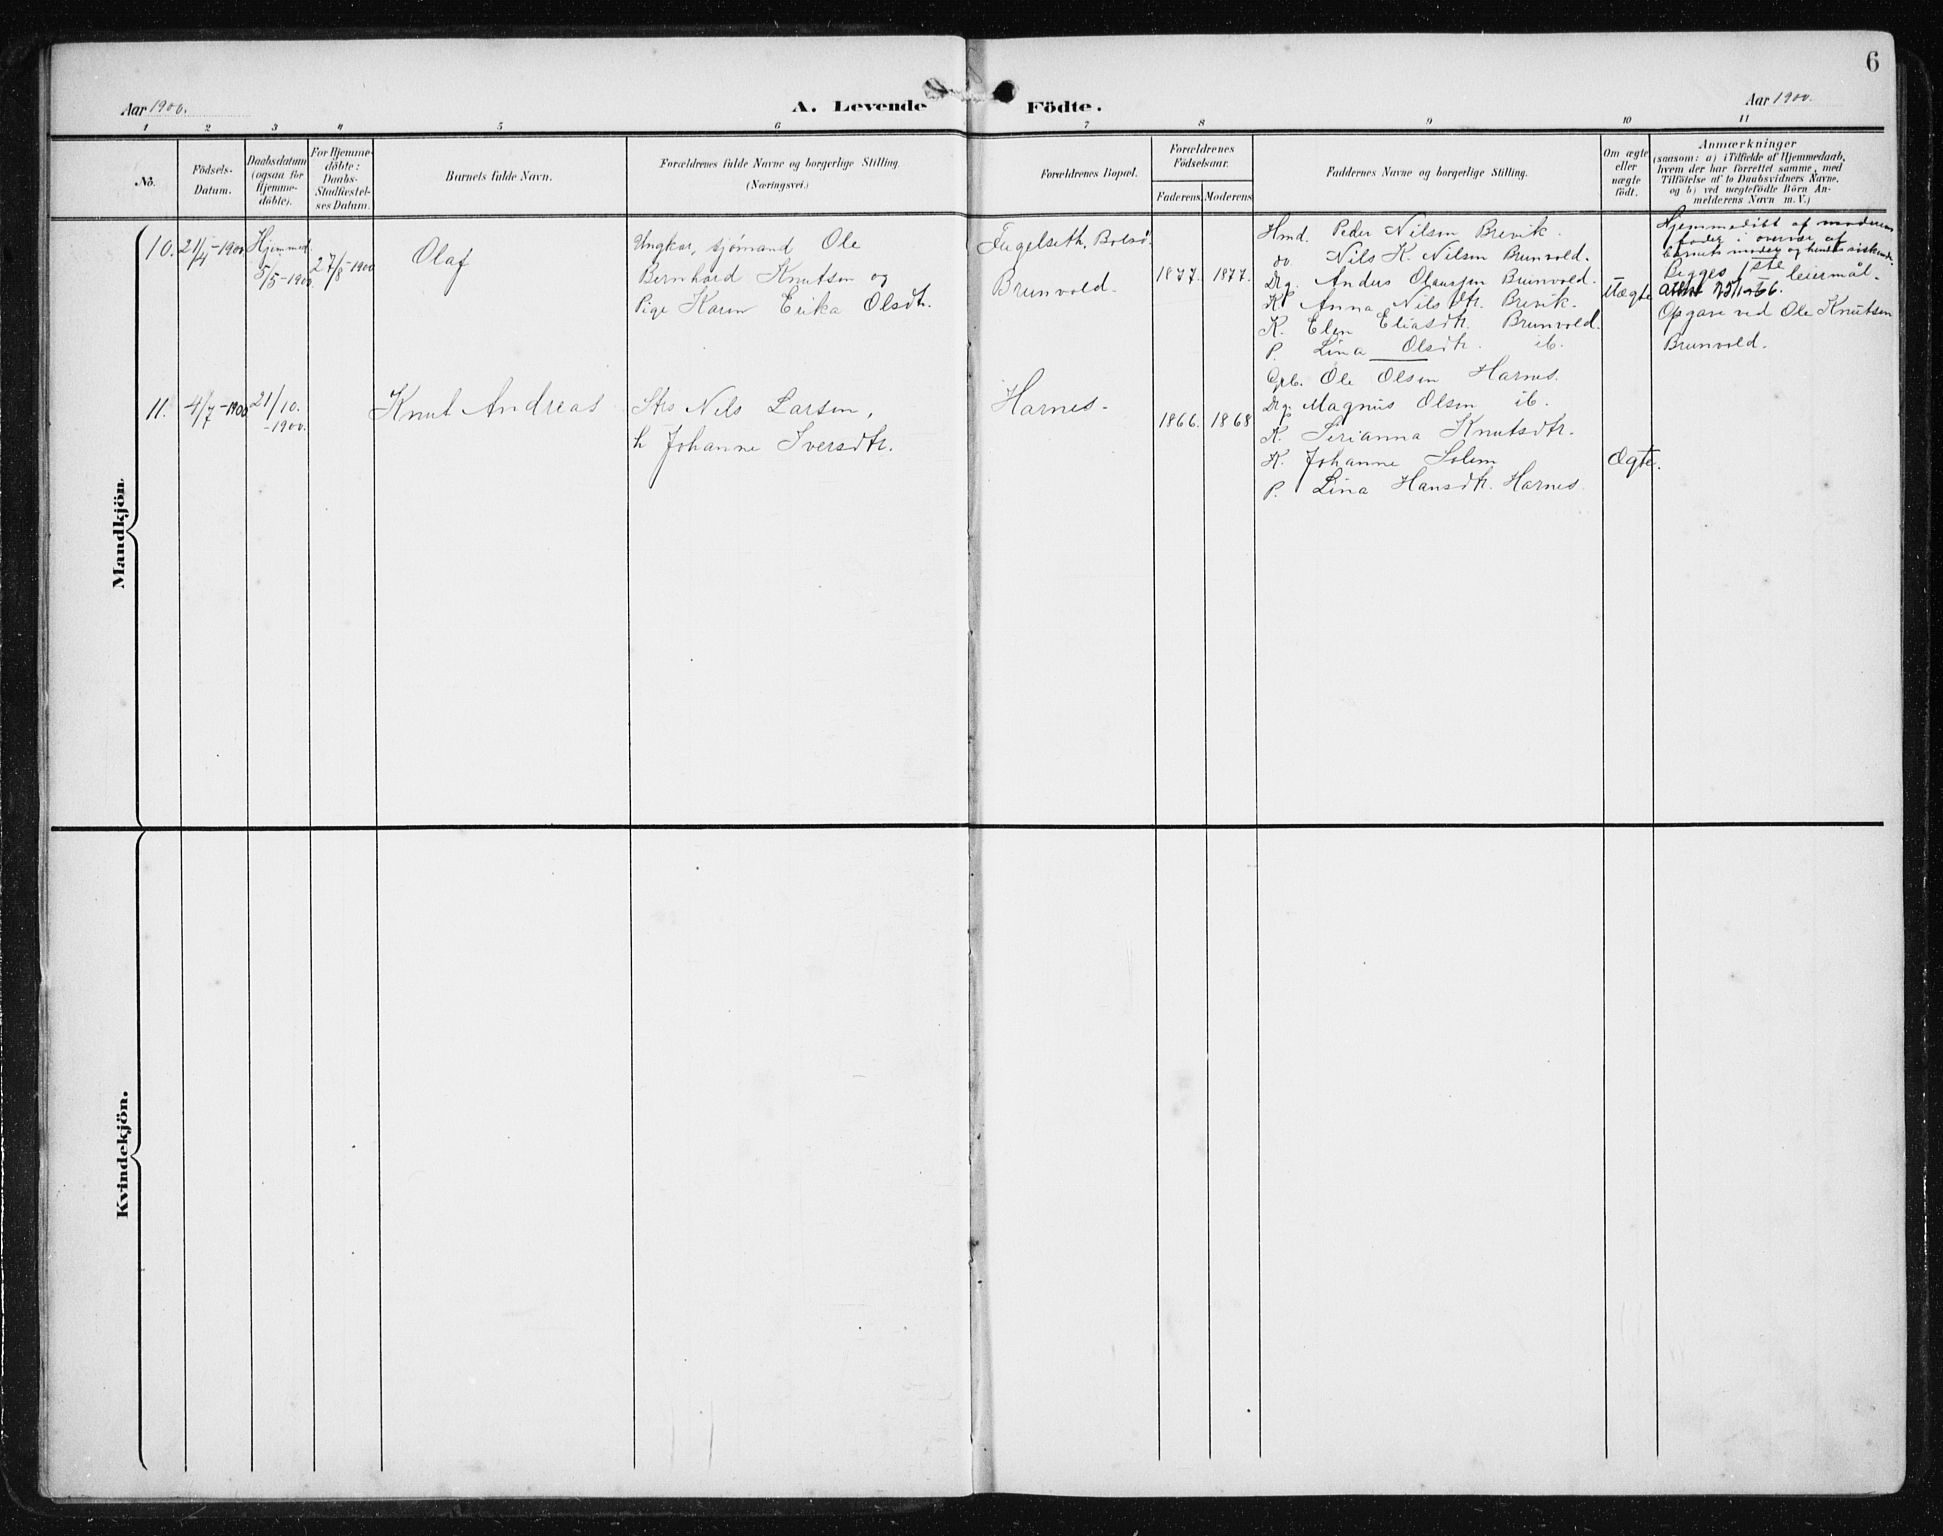 6
Aar 1900.
A. Levende Födte.
Aar 1900.
1 2 3 4 5 6 7 8 9 10 11
No.
Födsels-
Datum.
Daabsdatum
(ogsaa for
Hjemme-
döbte).
For Hjemme-
döbte:
Daabs-
Stadfæstel-
ses Datum.
Barnets fulde Navn.
Forældrenes fulde Navne og borgerlige Stilling.
(Næringsvei.)
Forældrenes Bopæl.
Forældrenes
Födselsaar.
Faderens Moderens
Faddernes Navne og borgerlige Stilling.
Om ægte
eller
uægte
födt.
Anmærkninger
(saasom: a) i Tilfælde af Hjemmedaab,
hvem der har forrettet samme, med
Tilföielse af to Daabsvidners Navne,
og b) ved uægtefödte Börn An-
melderens Navn m. V.)
Mandkjön.
10.
21/4-1900
Hjemmed.
5/5-1900
27/8-1900
Olaf
Ungkar, sjømand Ole
Bernhard Knutsen og
Pige Karen Erika Olsdtr.
Fugelseth, Bolsø.
Brunvold.
1877. 1877.
Hmd. Peder Nilsen Brevik.
do Nils K. Nilsen Brunvold.
Drg. Anders Olaussen Brunvold.
K. Anna Nilsdtr. Brevik.
K. Elen Eliasdtr. Brunvold.
P. Lina Olsdtr. ib.
Uægte
Hjemmedöbt af moderens
fader i overvær af
barnets moder og hendes søskende.
Begges 1ste leiermål.
Opgave ved Ole Knutsen
Brunvold.
11.
4/7-1900
21/10.
-1900.
Knut Andreas
Strs Nils Larsen,
h Johanne Iversdtr.
Harnes.
1866. 1868
Gpb. Ole Olsen Harnes.
Drg. Magnus Olsen ib.
K. Serianna Knutsdtr.
K. Johanne Solem
P. Lina Hansdtr. Harnes.
Ægte.
Kvindekjön.